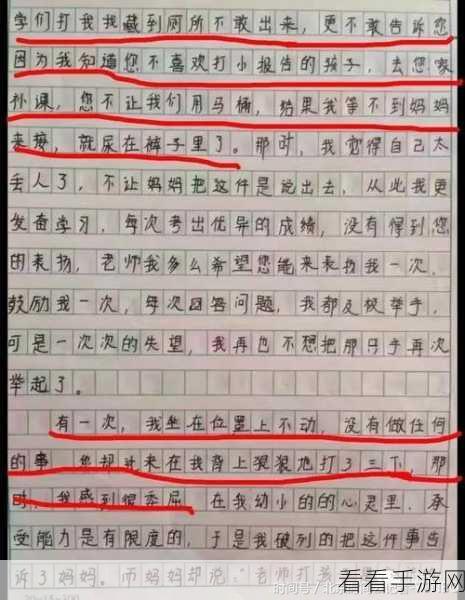 学们打我我藏到厕所不敢出来，更不敢告诉您
因为我知道您不喜欢打小报告的孩子，去您家
补课，您不让我们用马桶，结果我等不到妈妈
来接，就尿在裤子里了。那时，我觉得自己太
丢人了，不让妈妈把这件是说出去，从此我更
发奋学习，每次考出优异的成绩，没有得到您
的表扬，老师我多么希望您能来表扬我一次，
鼓励我一次，每次回答问题，我都及极举手，
可是一次次的失望，我再也不想把那只手再次
举起了。
有一次，我坐在位置上不动，没有做任何
的事，您却过来在我背上狠狠地打了三下，那
时，我感到很委屈，在我幼小的的心灵里，承
受能力是有限度的，于是我破列的把这件事告
诉了妈妈。而妈妈却说：“老师打孩
时间号/北
看看手游网